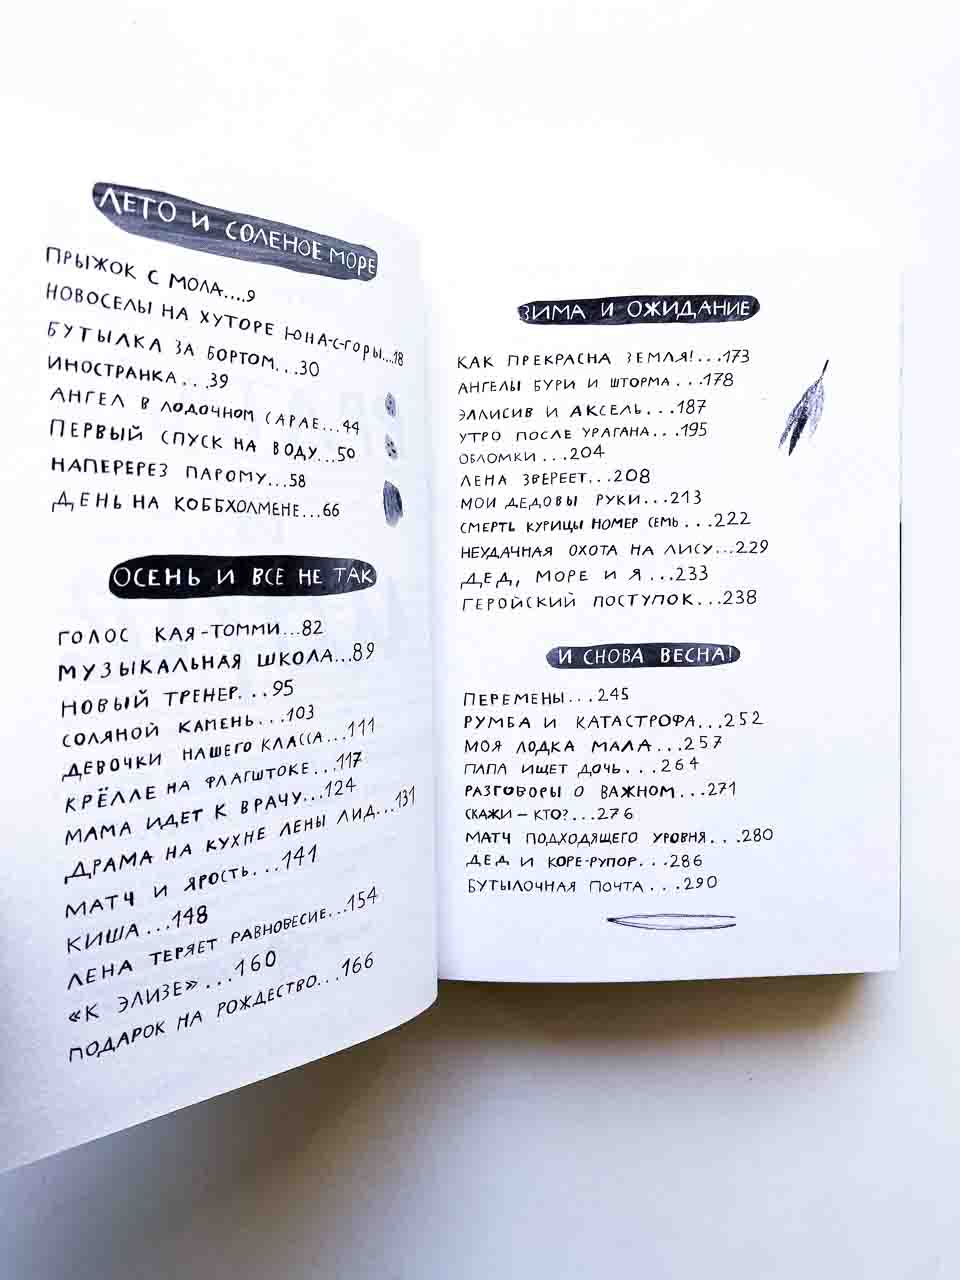 ЛЕТО И СОЛЕНОЕ МОРЕ
ПРЫЖОК С МОЛА....9
НОВОСЕЛЫ НА ХУТОРЕ ЮНА-С-ГОРЫ...18
БУТЫЛКА ЗА БОРТОМ...30
ИНОСТРАНКА...39
АНГЕЛ В ЛОДОЧНОМ САРАЕ...44
ПЕРВЫЙ СПУСК НА ВОДУ...50
НАПЕРЕРЕЗ ПАРОМУ...58
ДЕНЬ НА КОББХОЛМЕНЕ...66
ОСЕНЬ И ВСЕ НЕ ТАК
ГОЛОС КАЯ-ТОММИ...82
МУЗЫКАЛЬНАЯ ШКОЛА...89
НОВЫЙ ТРЕНЕР...95
СОЛЯНОЙ КАМЕНЬ...103
ДЕВОЧКИ НАШЕГО КЛАССА...111
КРЁЛЛЕ НА ФЛАГШТОКЕ...117
МАМА ИДЕТ К ВРАЧУ...124
ДРАМА НА КУХНЕ ЛЕНЫ ЛИД...131
МАТЧ И ЯРОСТЬ...141
КИША...148
ЛЕНА ТЕРЯЕТ РАВНОВЕСИЕ...154
«К ЭЛИЗЕ»...160
ПОДАРОК НА РОЖДЕСТВО...166
ЗИМА И ОЖИДАНИЕ
КАК ПРЕКРАСНА ЗЕМЛЯ!...173
АНГЕЛЫ БУРИ И ШТОРМА...178
ЭЛЛИСИВ И АКСЕЛЬ...187
УТРО ПОСЛЕ УРАГАНА...195
ОБЛОМКИ...204
ЛЕНА ЗВЕРЕЕТ...208
МОИ ДЕДОВЫ РУКИ...213
СМЕРТЬ КУРИЦЫ НОМЕР СЕМЬ...222
НЕУДАЧНАЯ ОХОТА НА ЛИСУ...229
ДЕД, МОРЕ И Я...233
ГЕРОЙСКИЙ ПОСТУПОК...238
И СНОВА ВЕСНА!
ПЕРЕМЕНЫ...245
РУМБА И КАТАСТРОФА...252
МОЯ ЛОДКА МАЛА...257
ПАПА ИЩЕТ ДОЧЬ...264
РАЗГОВОРЫ О ВАЖНОМ...271
СКАЖИ – КТО?...276
МАТЧ ПОДХОДЯЩЕГО УРОВНЯ...280
ДЕД И КОРЕ-РУПОР...286
БУТЫЛОЧНАЯ ПОЧТА...290